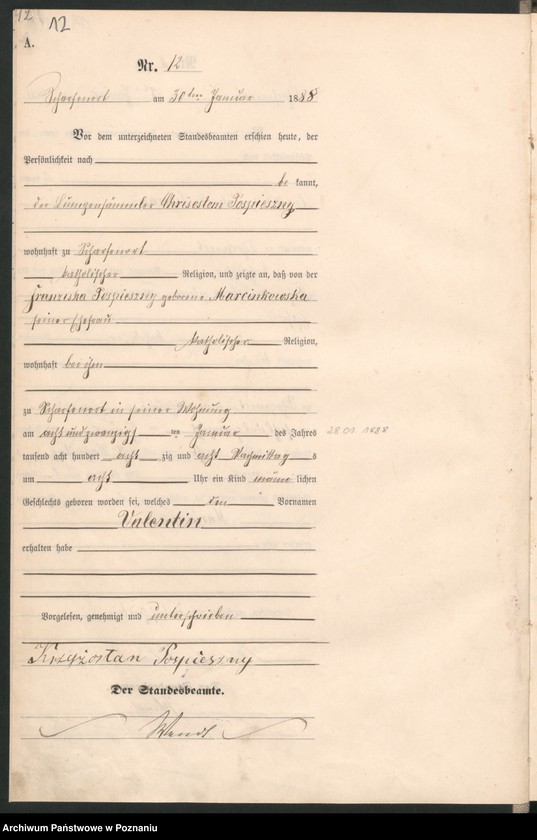 12
12
A.
Nr. 12
Scharfenort am 30ten Januar 1888
Vor dem unterzeichneten Standesbeamten erschien heute, der
Persönlichkeit nach
be kannt,
der Lumpensammler Chrisostom Pospieszny
wohnhaft zu Scharfenort
katholischer Religion, und zeigte an, daß von der
Franziska Pospieszny geborene Marcinkowska
seiner Ehefrau
katholischer Religion,
wohnhaft bei ihm
zu Scharfenort in seiner Wohnung
am acht und zwanzigsten Januar des Jahres
28.01.1888
tausend acht hundert acht zig und acht Nachmittag s
um acht Uhr ein Kind männ lichen
Geschlechts geboren worden sei, welches den Vornamen
Valentin
erhalten habe
Vorgelesen, genehmigt und unterschrieben
Krzyzostan Pospieszny
Der Standesbeamte.
Wendt
Archiwum Państwowe w Poznaniu